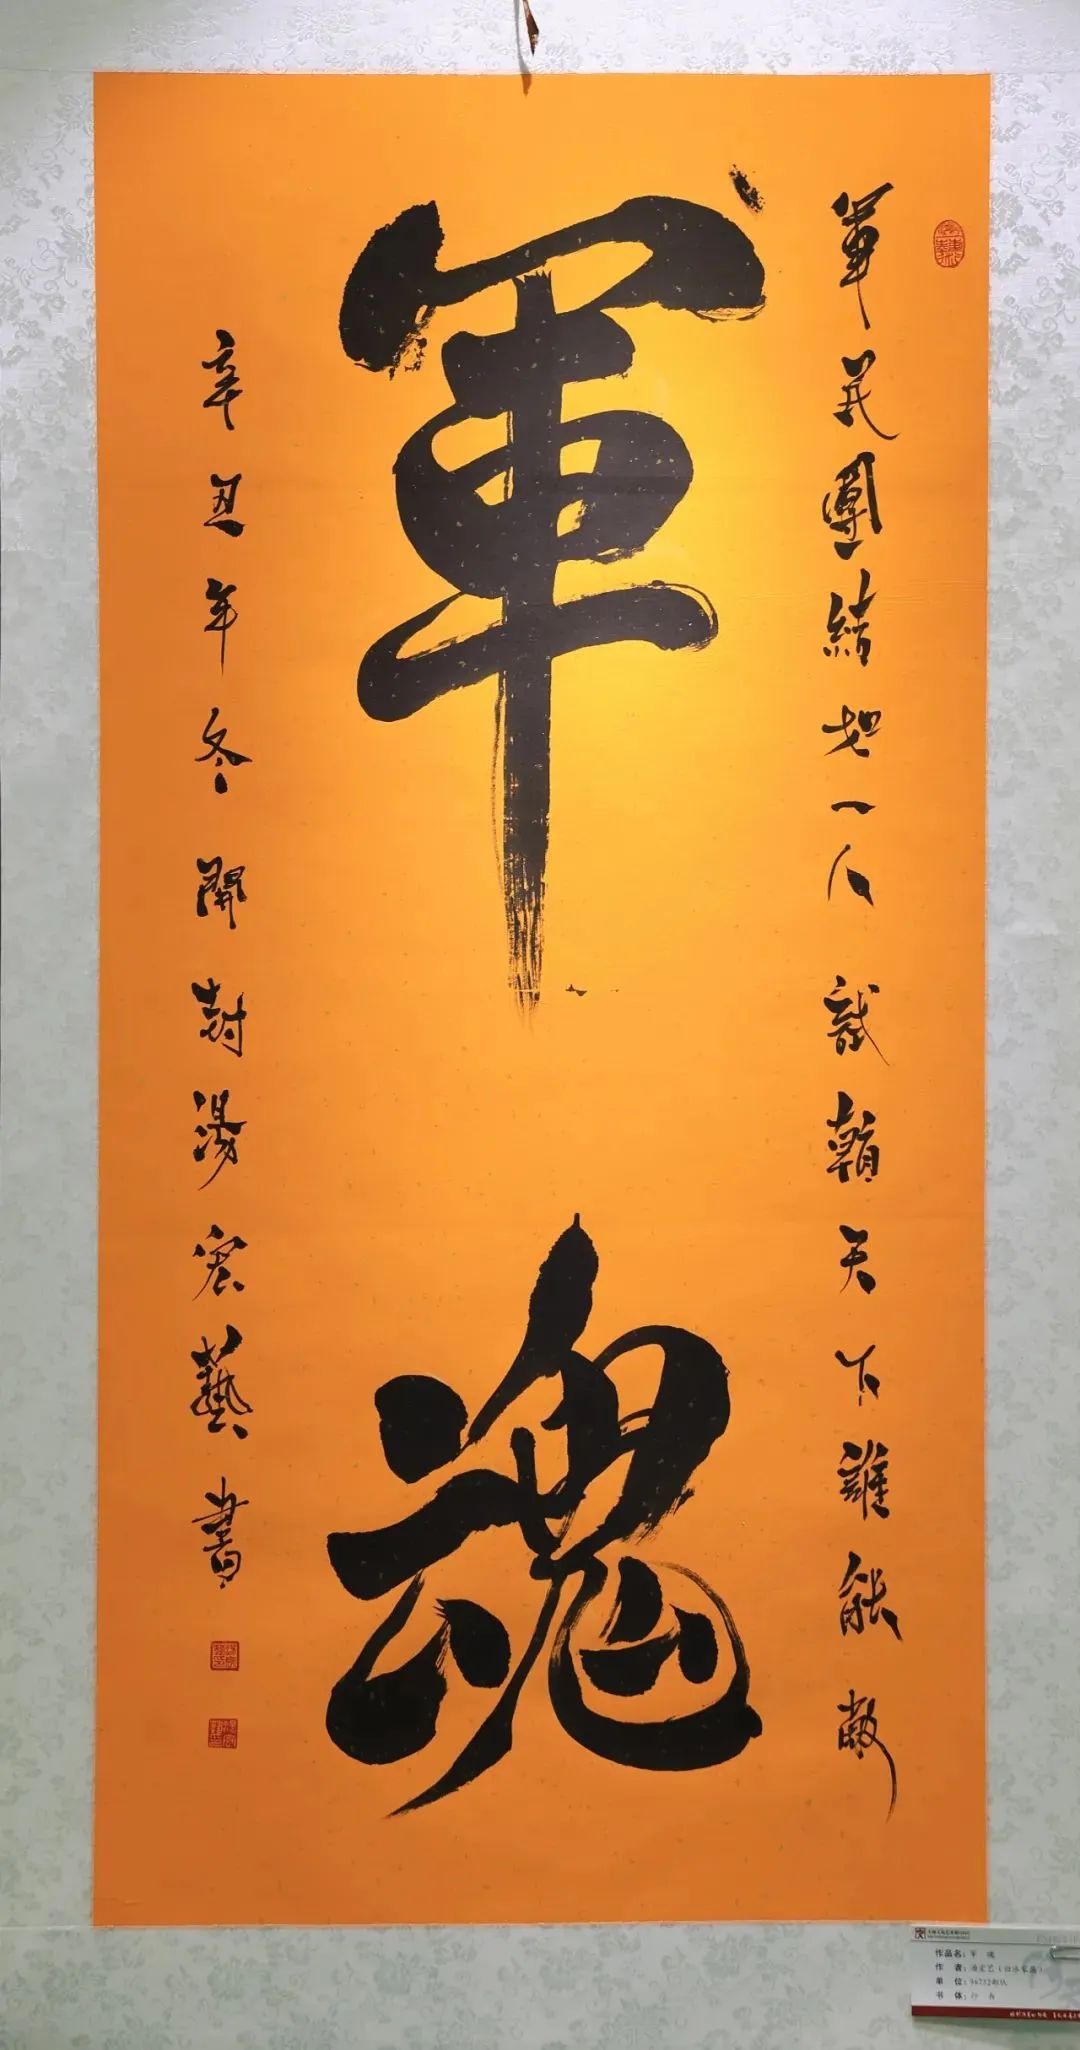 軍民團結如一人試看天下誰能敵
軍魂
辛丑年冬開封湯宏藝書
作品名：军 魂
单 位：96732部队
书 体：行 书